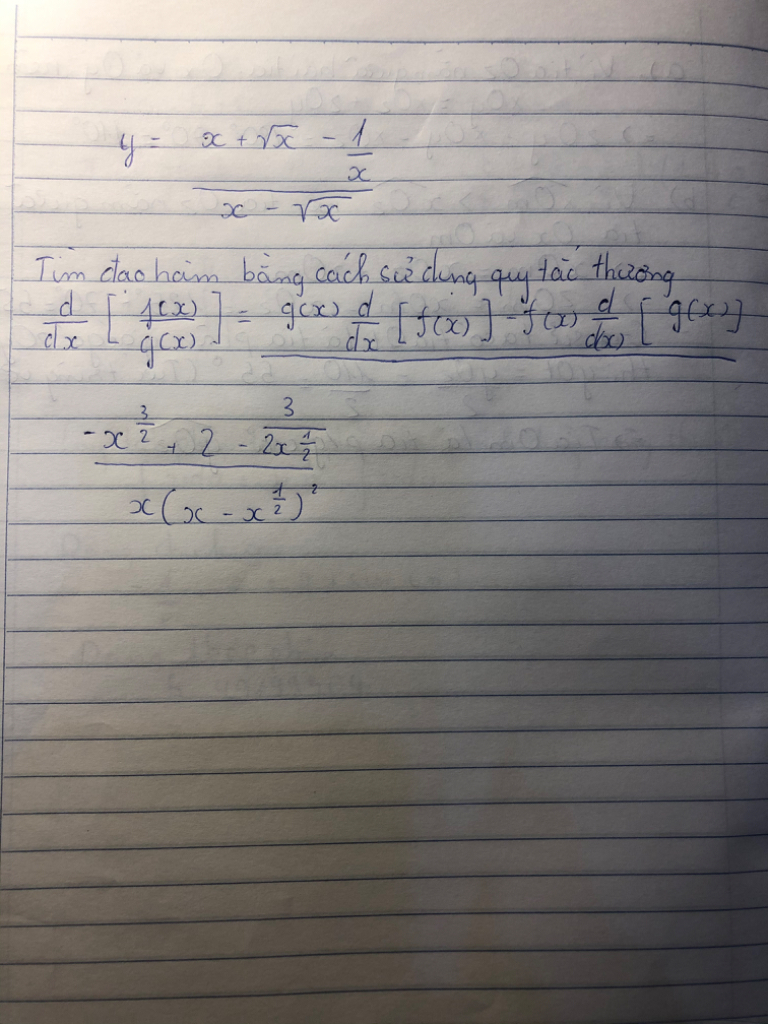 y = x + √x - 1/x
x - √x
Tìm đạo hàm bằng cách sử dụng quy tắc thương
d/dx [ f(x)/g(x) ] = g(x) d/dx [ f(x) ] - f(x) d/d(x) [ g(x) ]
-x^(3/2) + 2 - 3/(2x^(1/2))
x ( x - x^(1/2) )^2